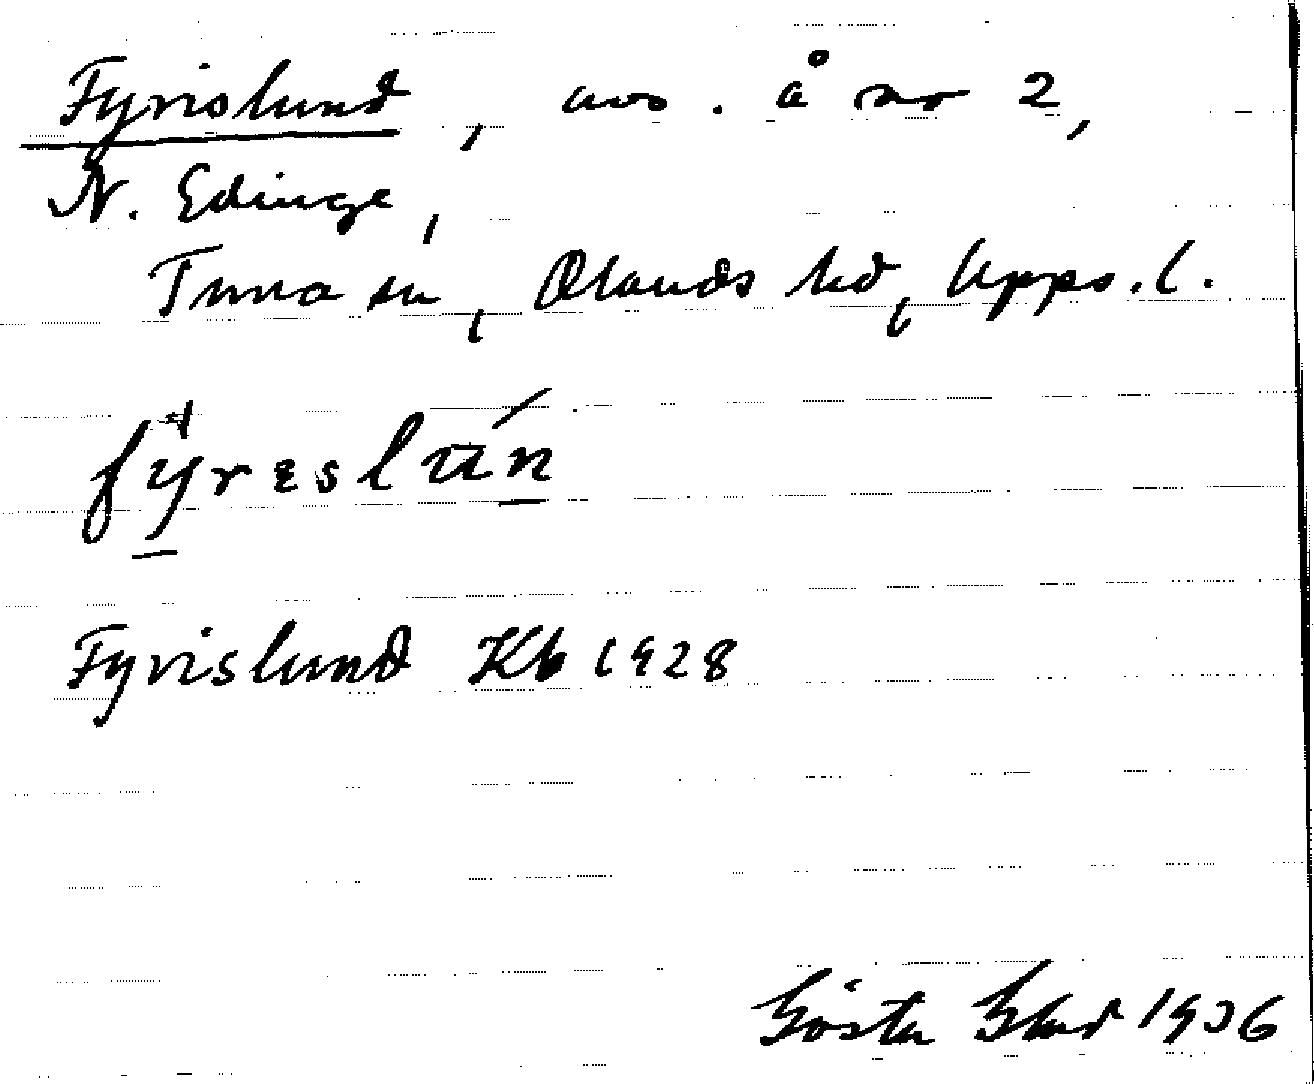 Fyrislund, avs. å nr 2,
N. Edinge,
Tuna sn, Olands hd, Upps. l.
fýreslún
Fyrislund Kb 1928
Gösta 1936